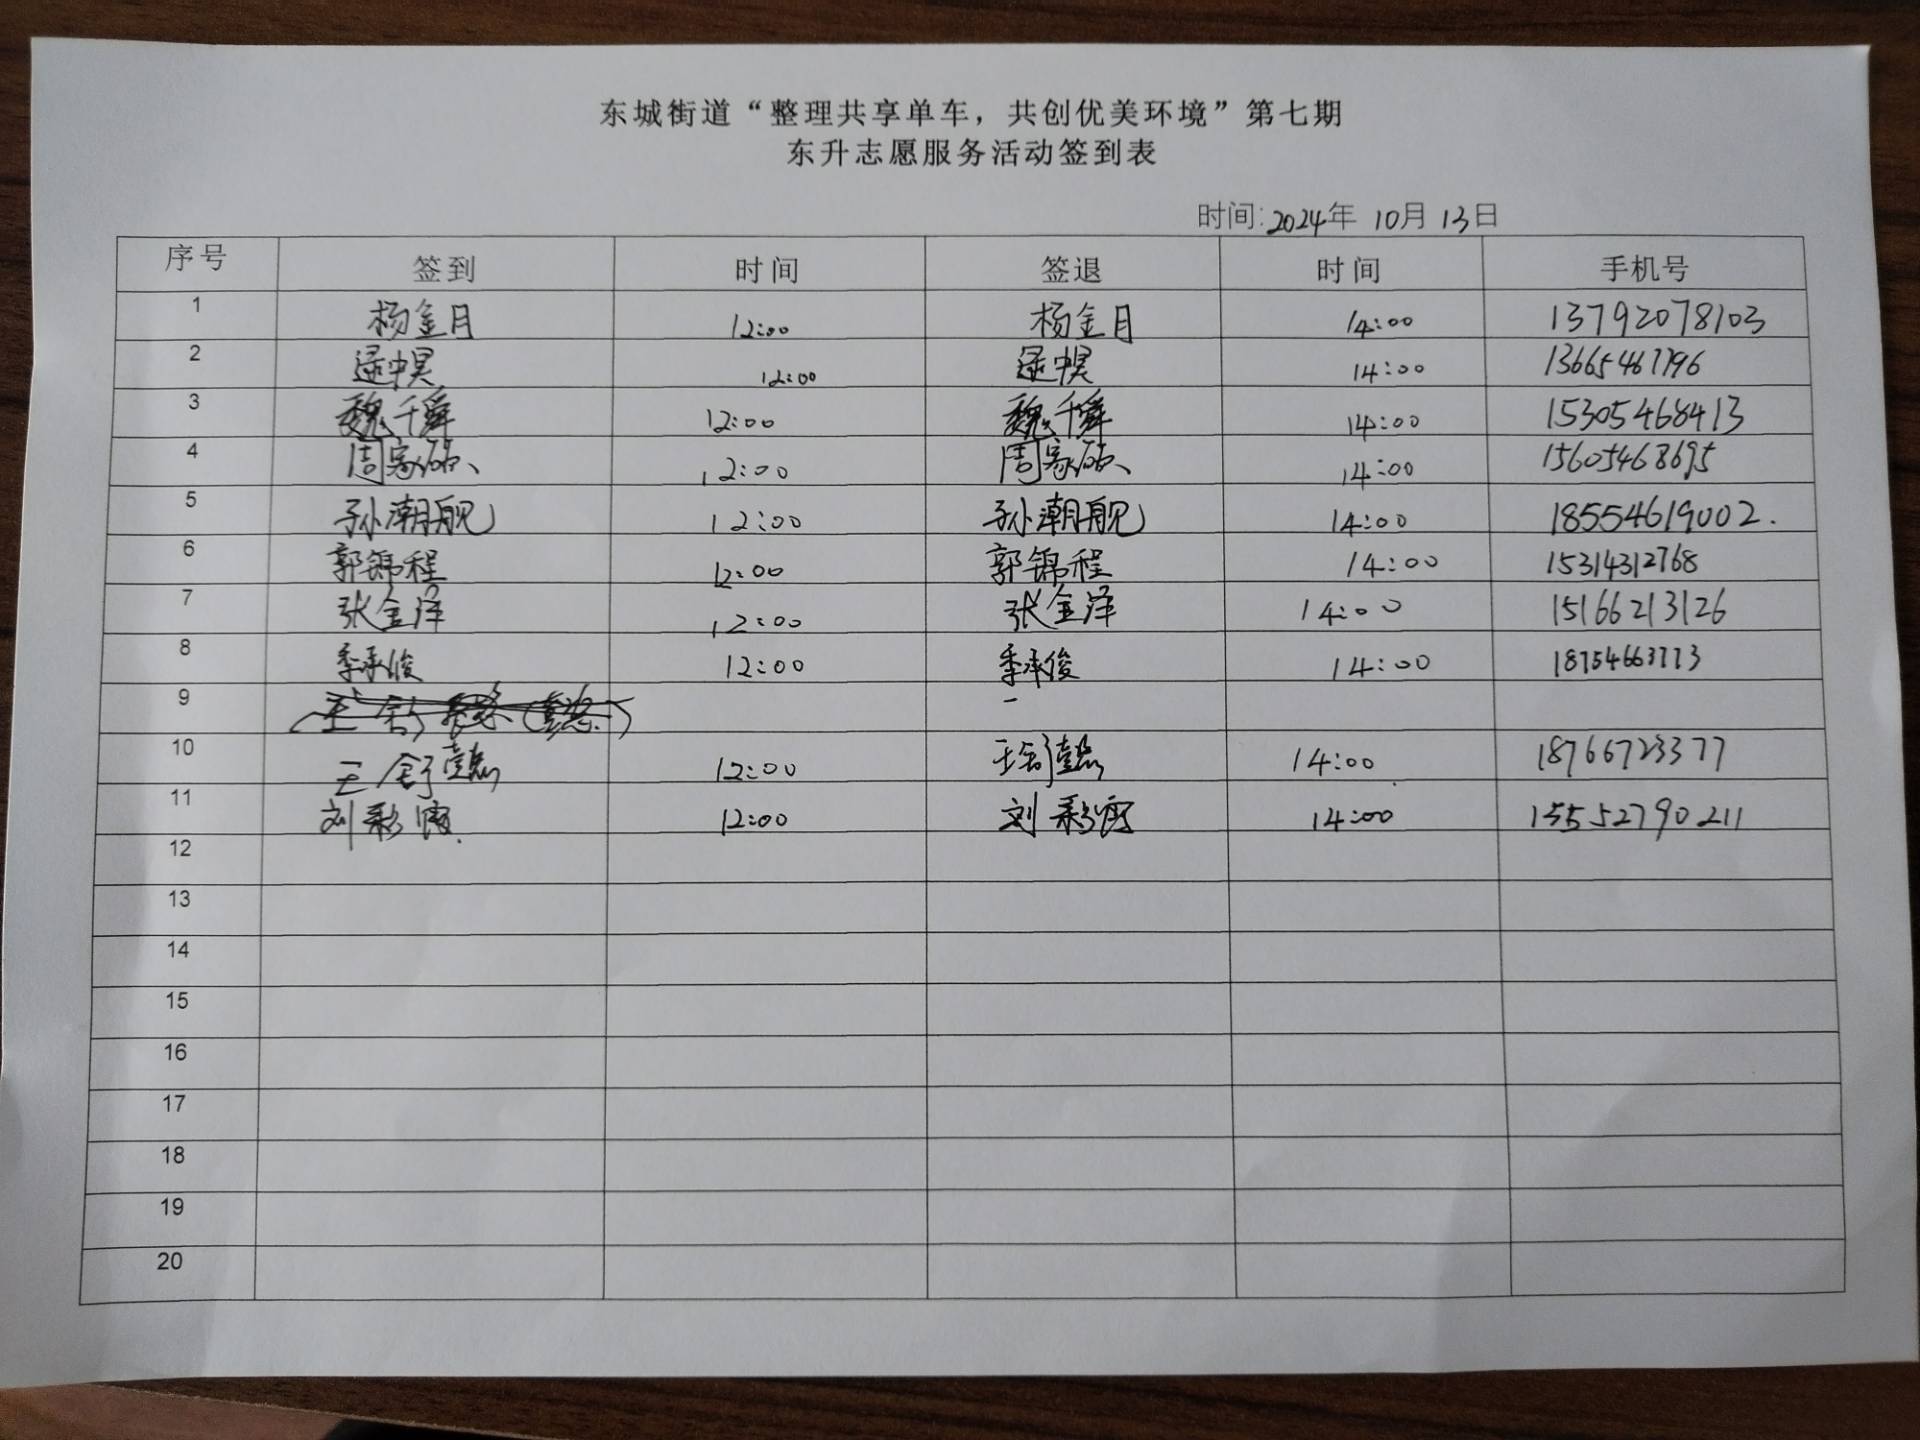 东城街道“整理共享单车，共创优美环境”第七期
东升志愿服务活动签到表
时间:2024年 10月 13日
序号 签到 时间 签退 时间 手机号
1 杨金月 12:00 杨金月 14:00 13792078103
2 12:00 14:00 13665467796
3 魏千舜 12:00 魏千舜 14:00 15305468413
4 周家 12:00 周家 14:00 15605468695
5 孙潮舰 12:00 孙潮舰 14:00 18554619002.
6 郭锦程 12:00 郭锦程 14:00 15314312768
7 张金泽 12:00 张金泽 14:00 15166213126
8 季承俊 12:00 季承俊 14:00 18754663773
9
10 王舒懿 12:00 王舒懿 14:00 18766723377
11 刘彩霞 12:00 刘彩霞 14:00 15552790211
12
13
14
15
16
17
18
19
20